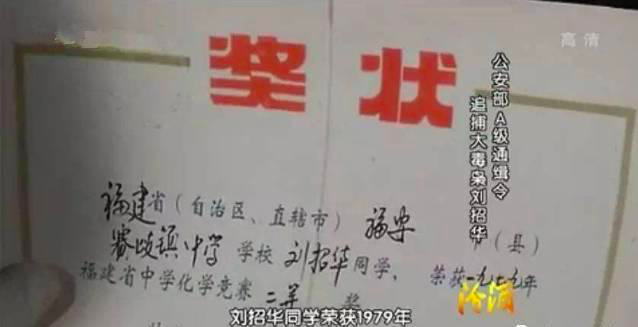 高清
奖状
公安部A级通缉令
追捕大毒枭刘招华
福建省(自治区、直辖市)福安 (县)
赛岐镇中学学校刘招华同学,荣获一九七九年
福建省中学化学竞赛二等奖
刘招华同学荣获1979年